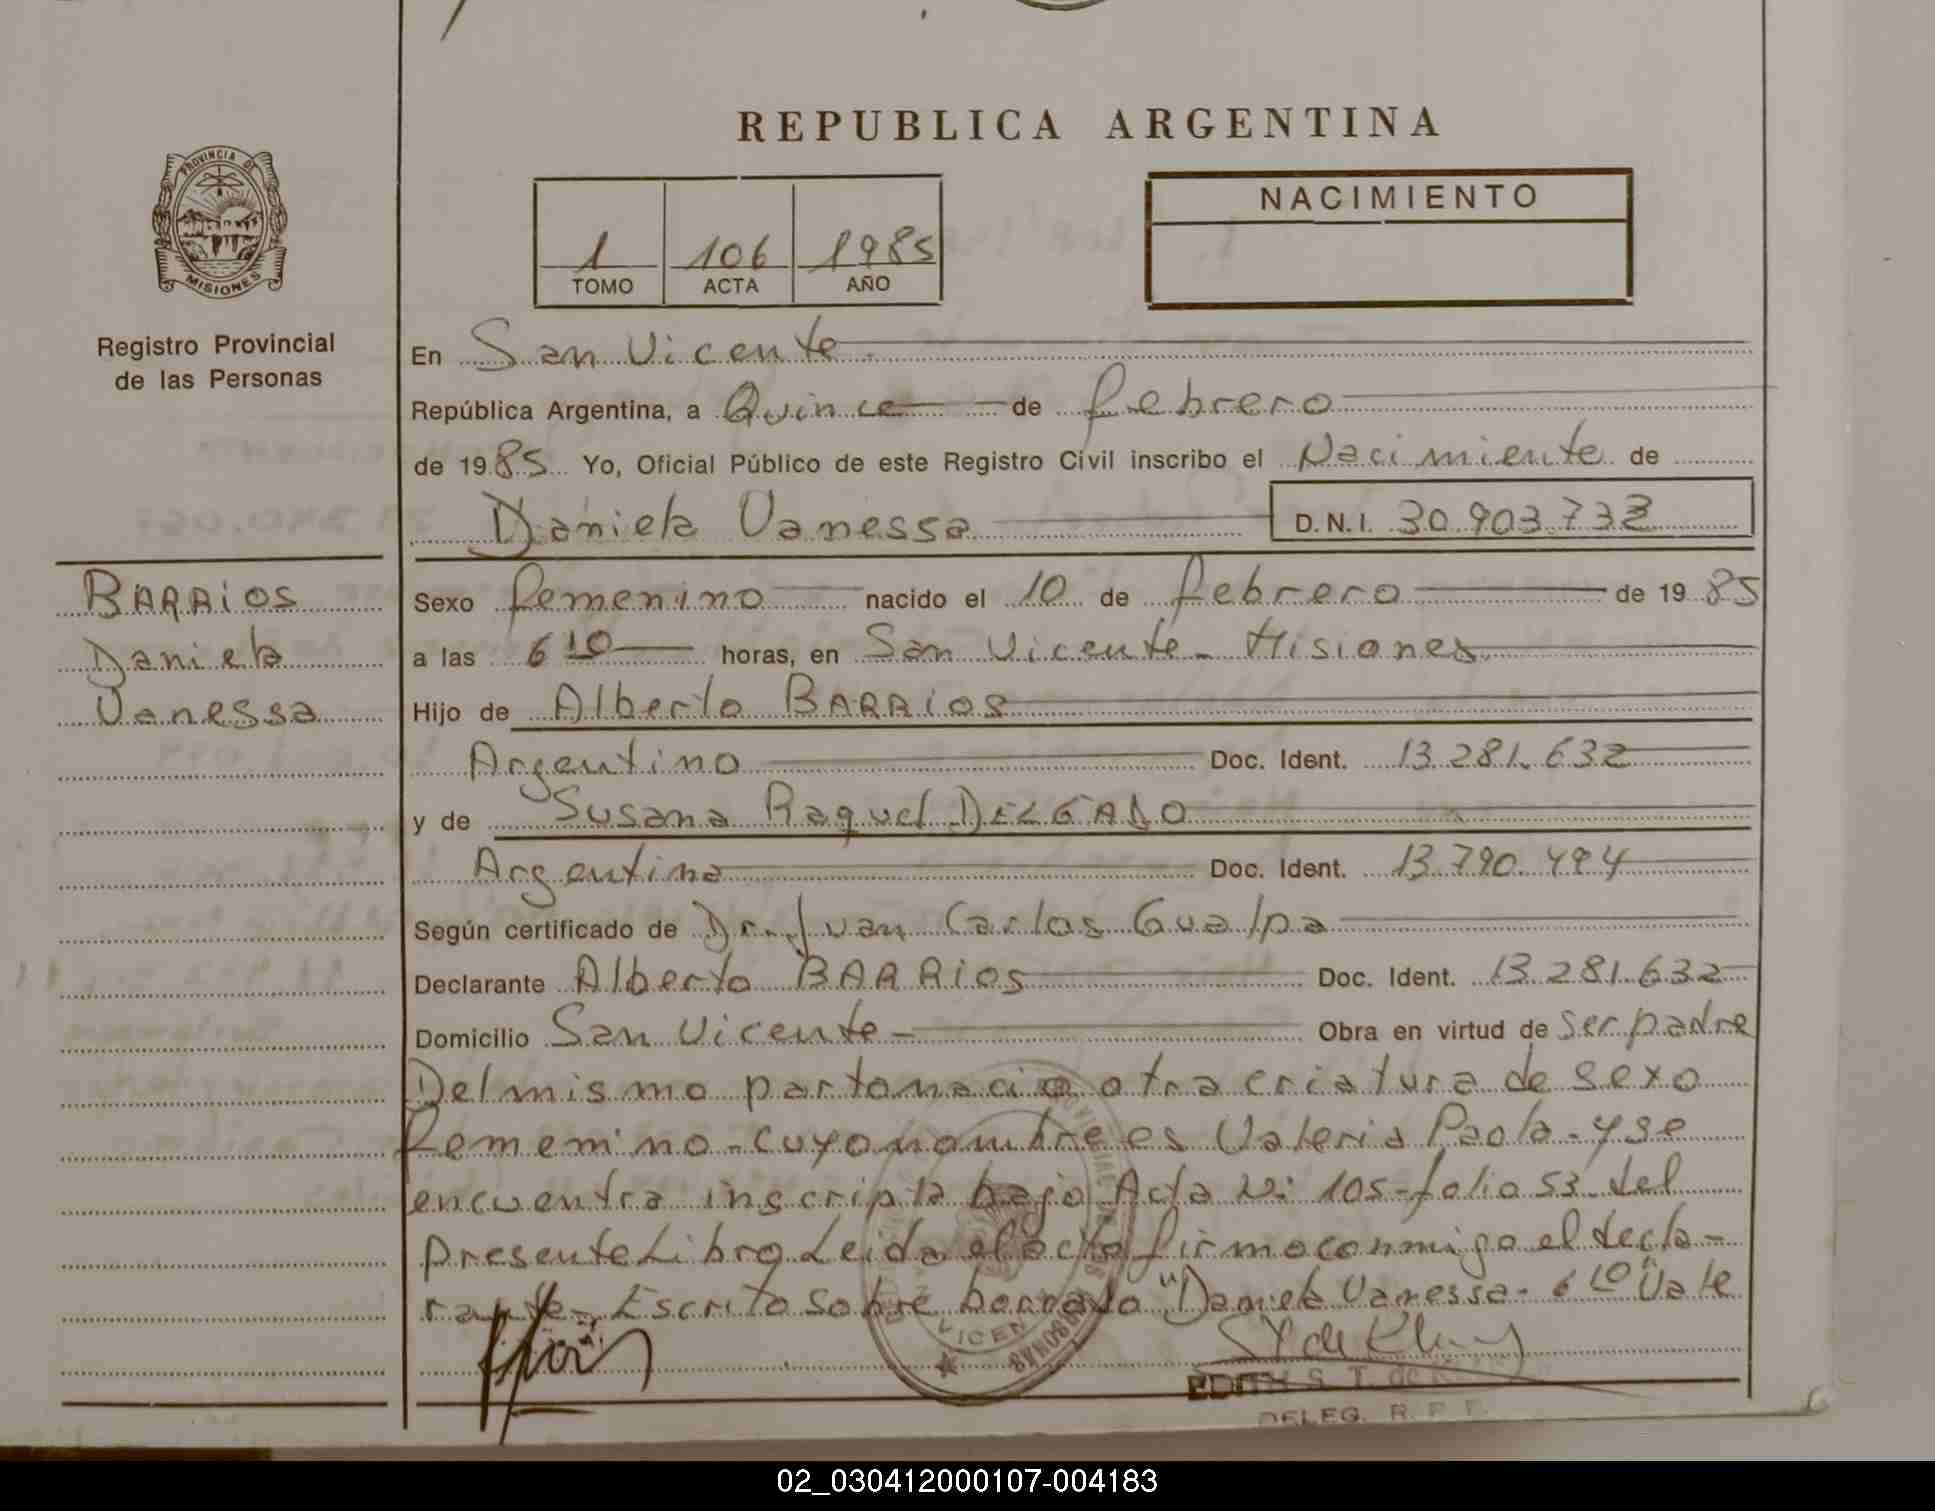 REPUBLICA ARGENTINA
PROVINCIA DE MISIONES
Registro Provincial
de las Personas
1 106 1985
TOMO ACTA AÑO
NACIMIENTO
En San Vicente
República Argentina, a Quince de febrero
de 1985 Yo, Oficial Público de este Registro Civil inscribo el Nacimiento de
Daniela Vanessa D.N.I. 30.903.733
BARRIOS
Daniela
Vanessa
Sexo femenino nacido el 10 de febrero de 1985
a las 6 10 horas, en San Vicente - Misiones
Hijo de Alberto BARRIOS
Argentino Doc. Ident. 13.281.632
y de Susana Raquel DELGADO
Argentina Doc. Ident. 13.790.494
Según certificado de Dr. Juan Carlos Gualpa
Declarante Alberto BARRIOS Doc. Ident. 13.281.632
Domicilio San Vicente - Obra en virtud de ser padre
Del mismo parto nacio otra criatura de sexo
femenino - cuyo nombre es Valeria Paola - y se
encuentra inscripta bajo Acta N: 105 - folio 53 del
presente Libro Leida el acto firmo conmigo el decla-
rante - Escrito sobre borrado "Daniela Vanessa - 6 10" Vale
VICENTE
EDITH S. T. de
DELEG. R. P. P.
02_030412000107-004183